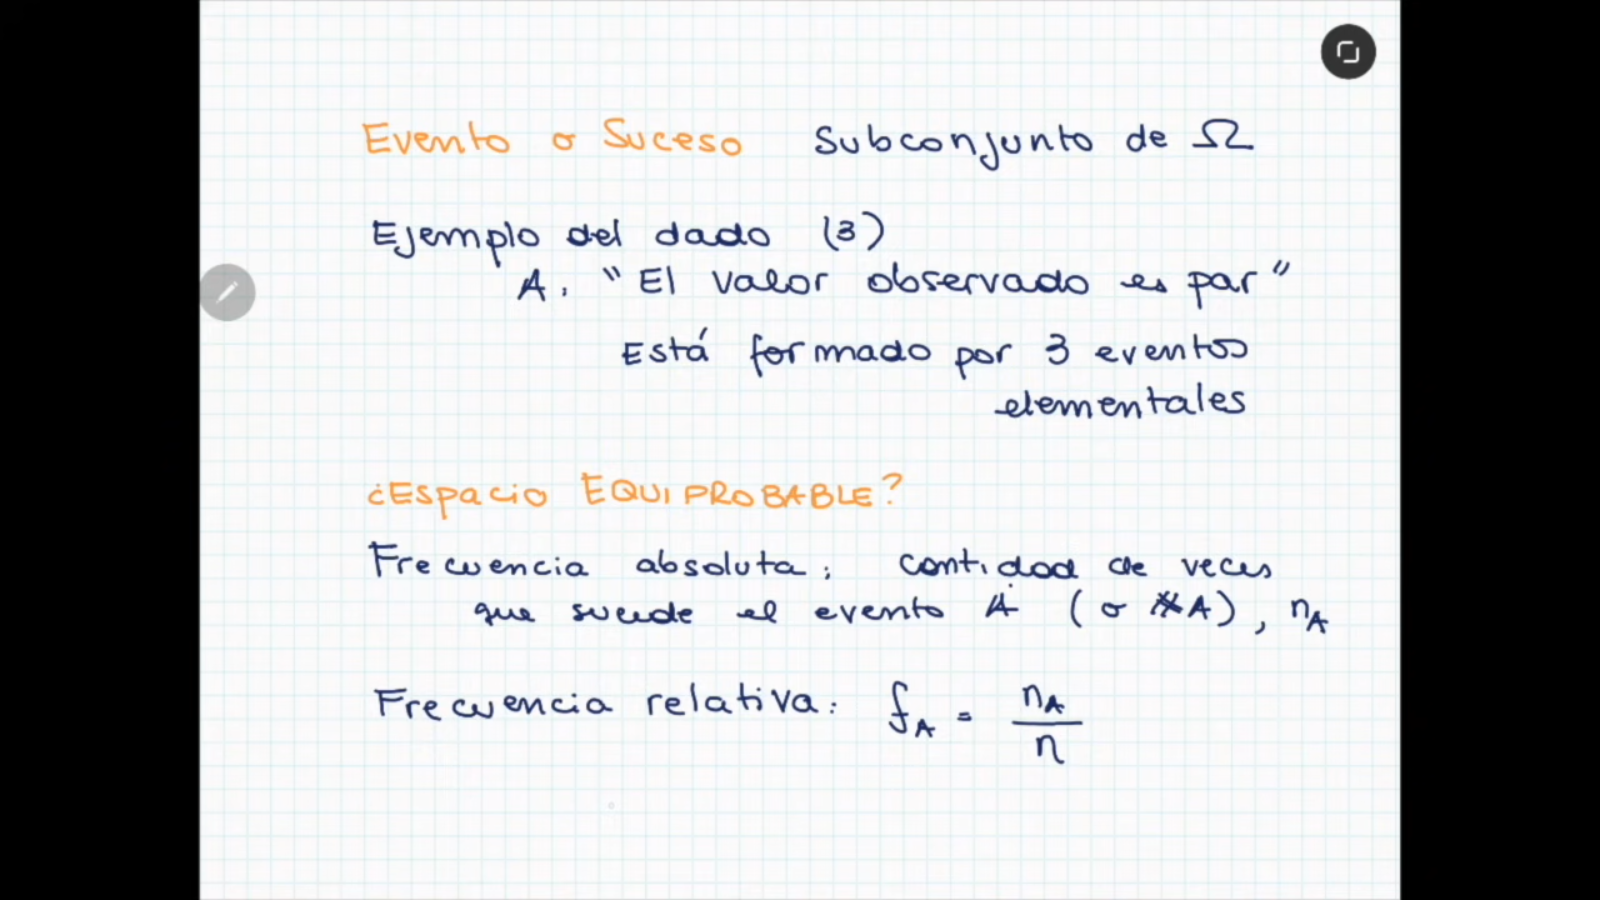 Evento o Suceso Subconjunto de Ω
Ejemplo del dado (3)
A: "El valor observado es par"
Está formado por 3 eventos
elementales
¿Espacio EQUIPROBABLE?
Frecuencia absoluta: cantidad de veces
que sucede el evento A (o #A), n_A
Frecuencia relativa: f_A = n_A / n